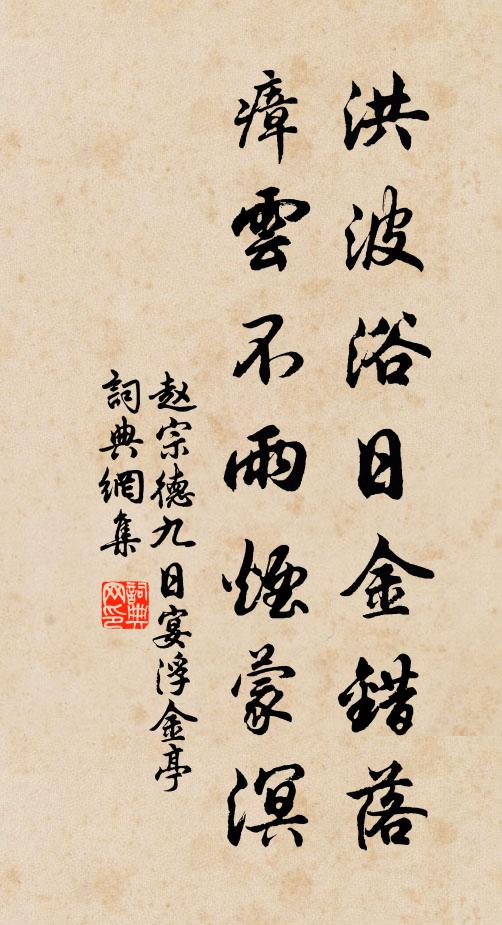 洪波浴日金錯落
瘴雲不雨煙蒙溟
赵宗德九日宴浮金亭
詞典網集
詞典网印